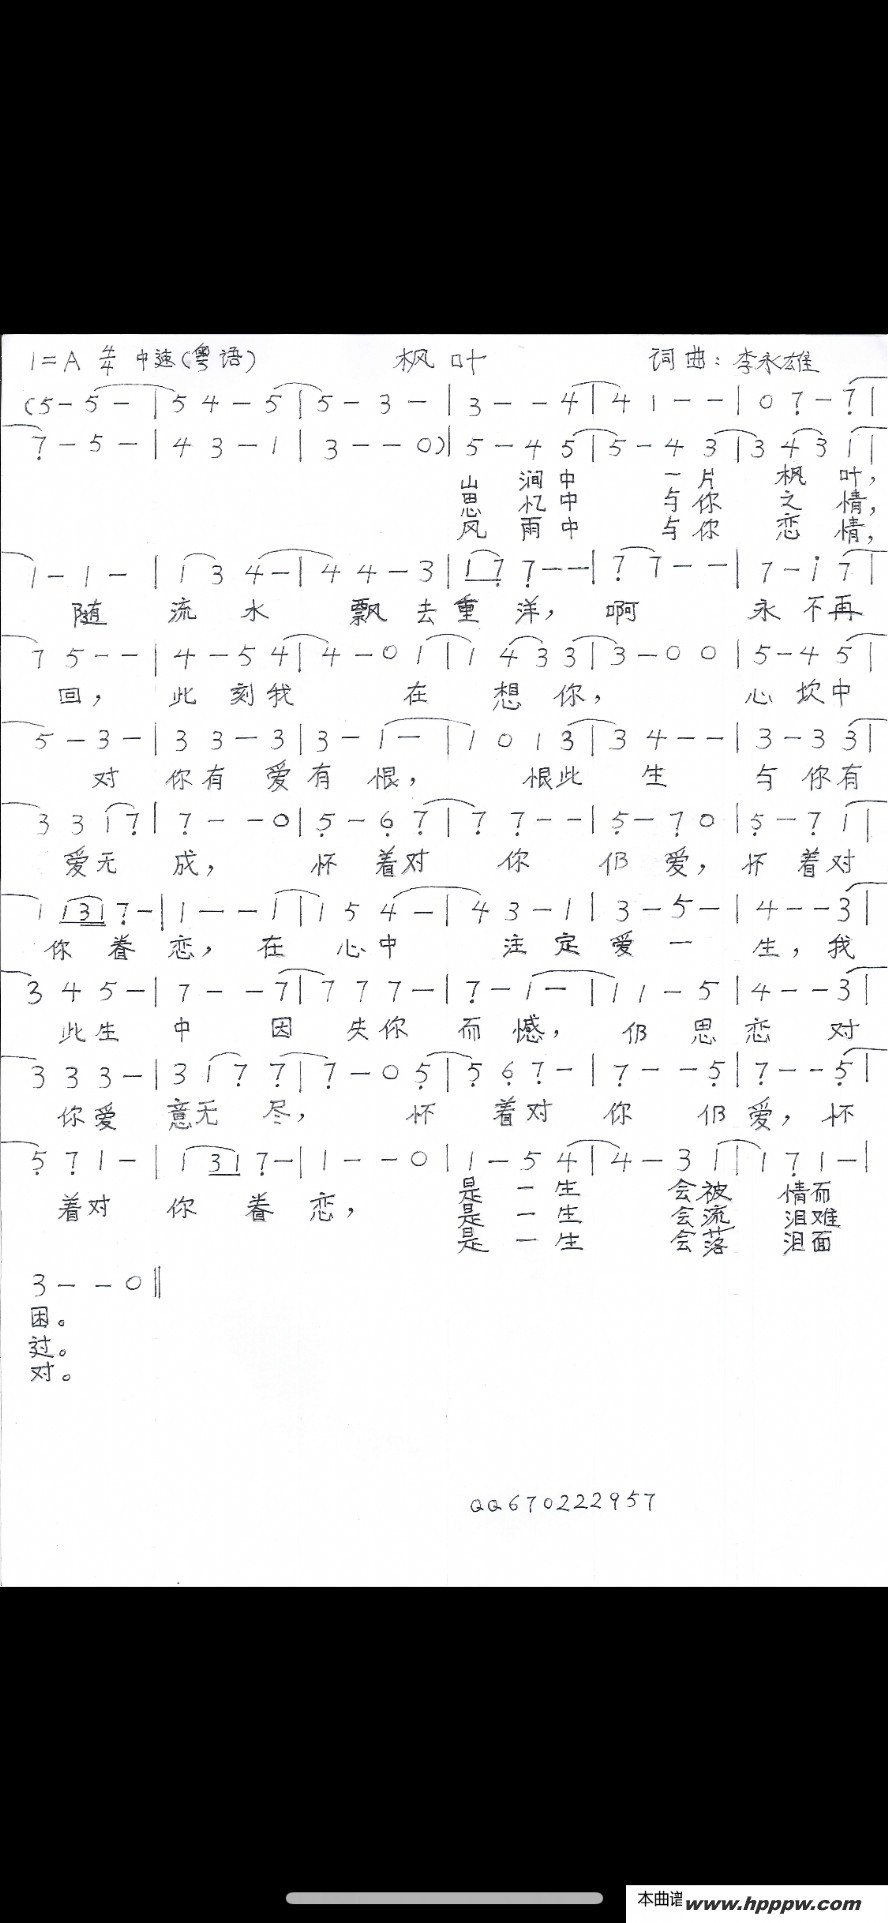 1=A 4/4 中速(粤语) 枫叶 词曲：李永雄
(5-5-|54-5|5-3-|3--4|41--|07-7|
7-5-|43-1|3--0)|5-45|5-43|3431|
山涧中 一片 枫叶，
思忆中 与你 之情，
风雨中 与你 恋情，
1-1-|134-|44-3|177--|77--|7-i7|
随 流水 飘去重洋， 啊 永不再
75--|4-54|4-01|1433|3-00|5-45|
回， 此刻我 在 想你， 心坎中
5-3-|33-3|3-1-|1013|34--|3-33|
对 你有爱有恨， 恨此 生 与你有
3317|7--0|5-67|77--|5-70|5-71|
爱无 成， 怀着对 你 仍爱，怀着对
11317-|1--1|154-|43-1|3-5-|4--3|
你眷恋，在 心中 注定爱一 生，我
345-|7--7|777-|7-1-|11-5|4--3|
此生 中 因 失你 而憾， 仍思恋 对
333-|3177|7-05|567-|7--5|7--5|
你爱 意无尽， 怀 着对 你 仍爱，怀
571-|1317-|1--0|1-54|4-31|171-|
着对 你眷恋， 是一生 会被 情而
是一生 会流 泪难
是一生 会落 泪面
3--0‖
困。
过。
对。
QQ670222957
本曲谱 www.hpppw.com